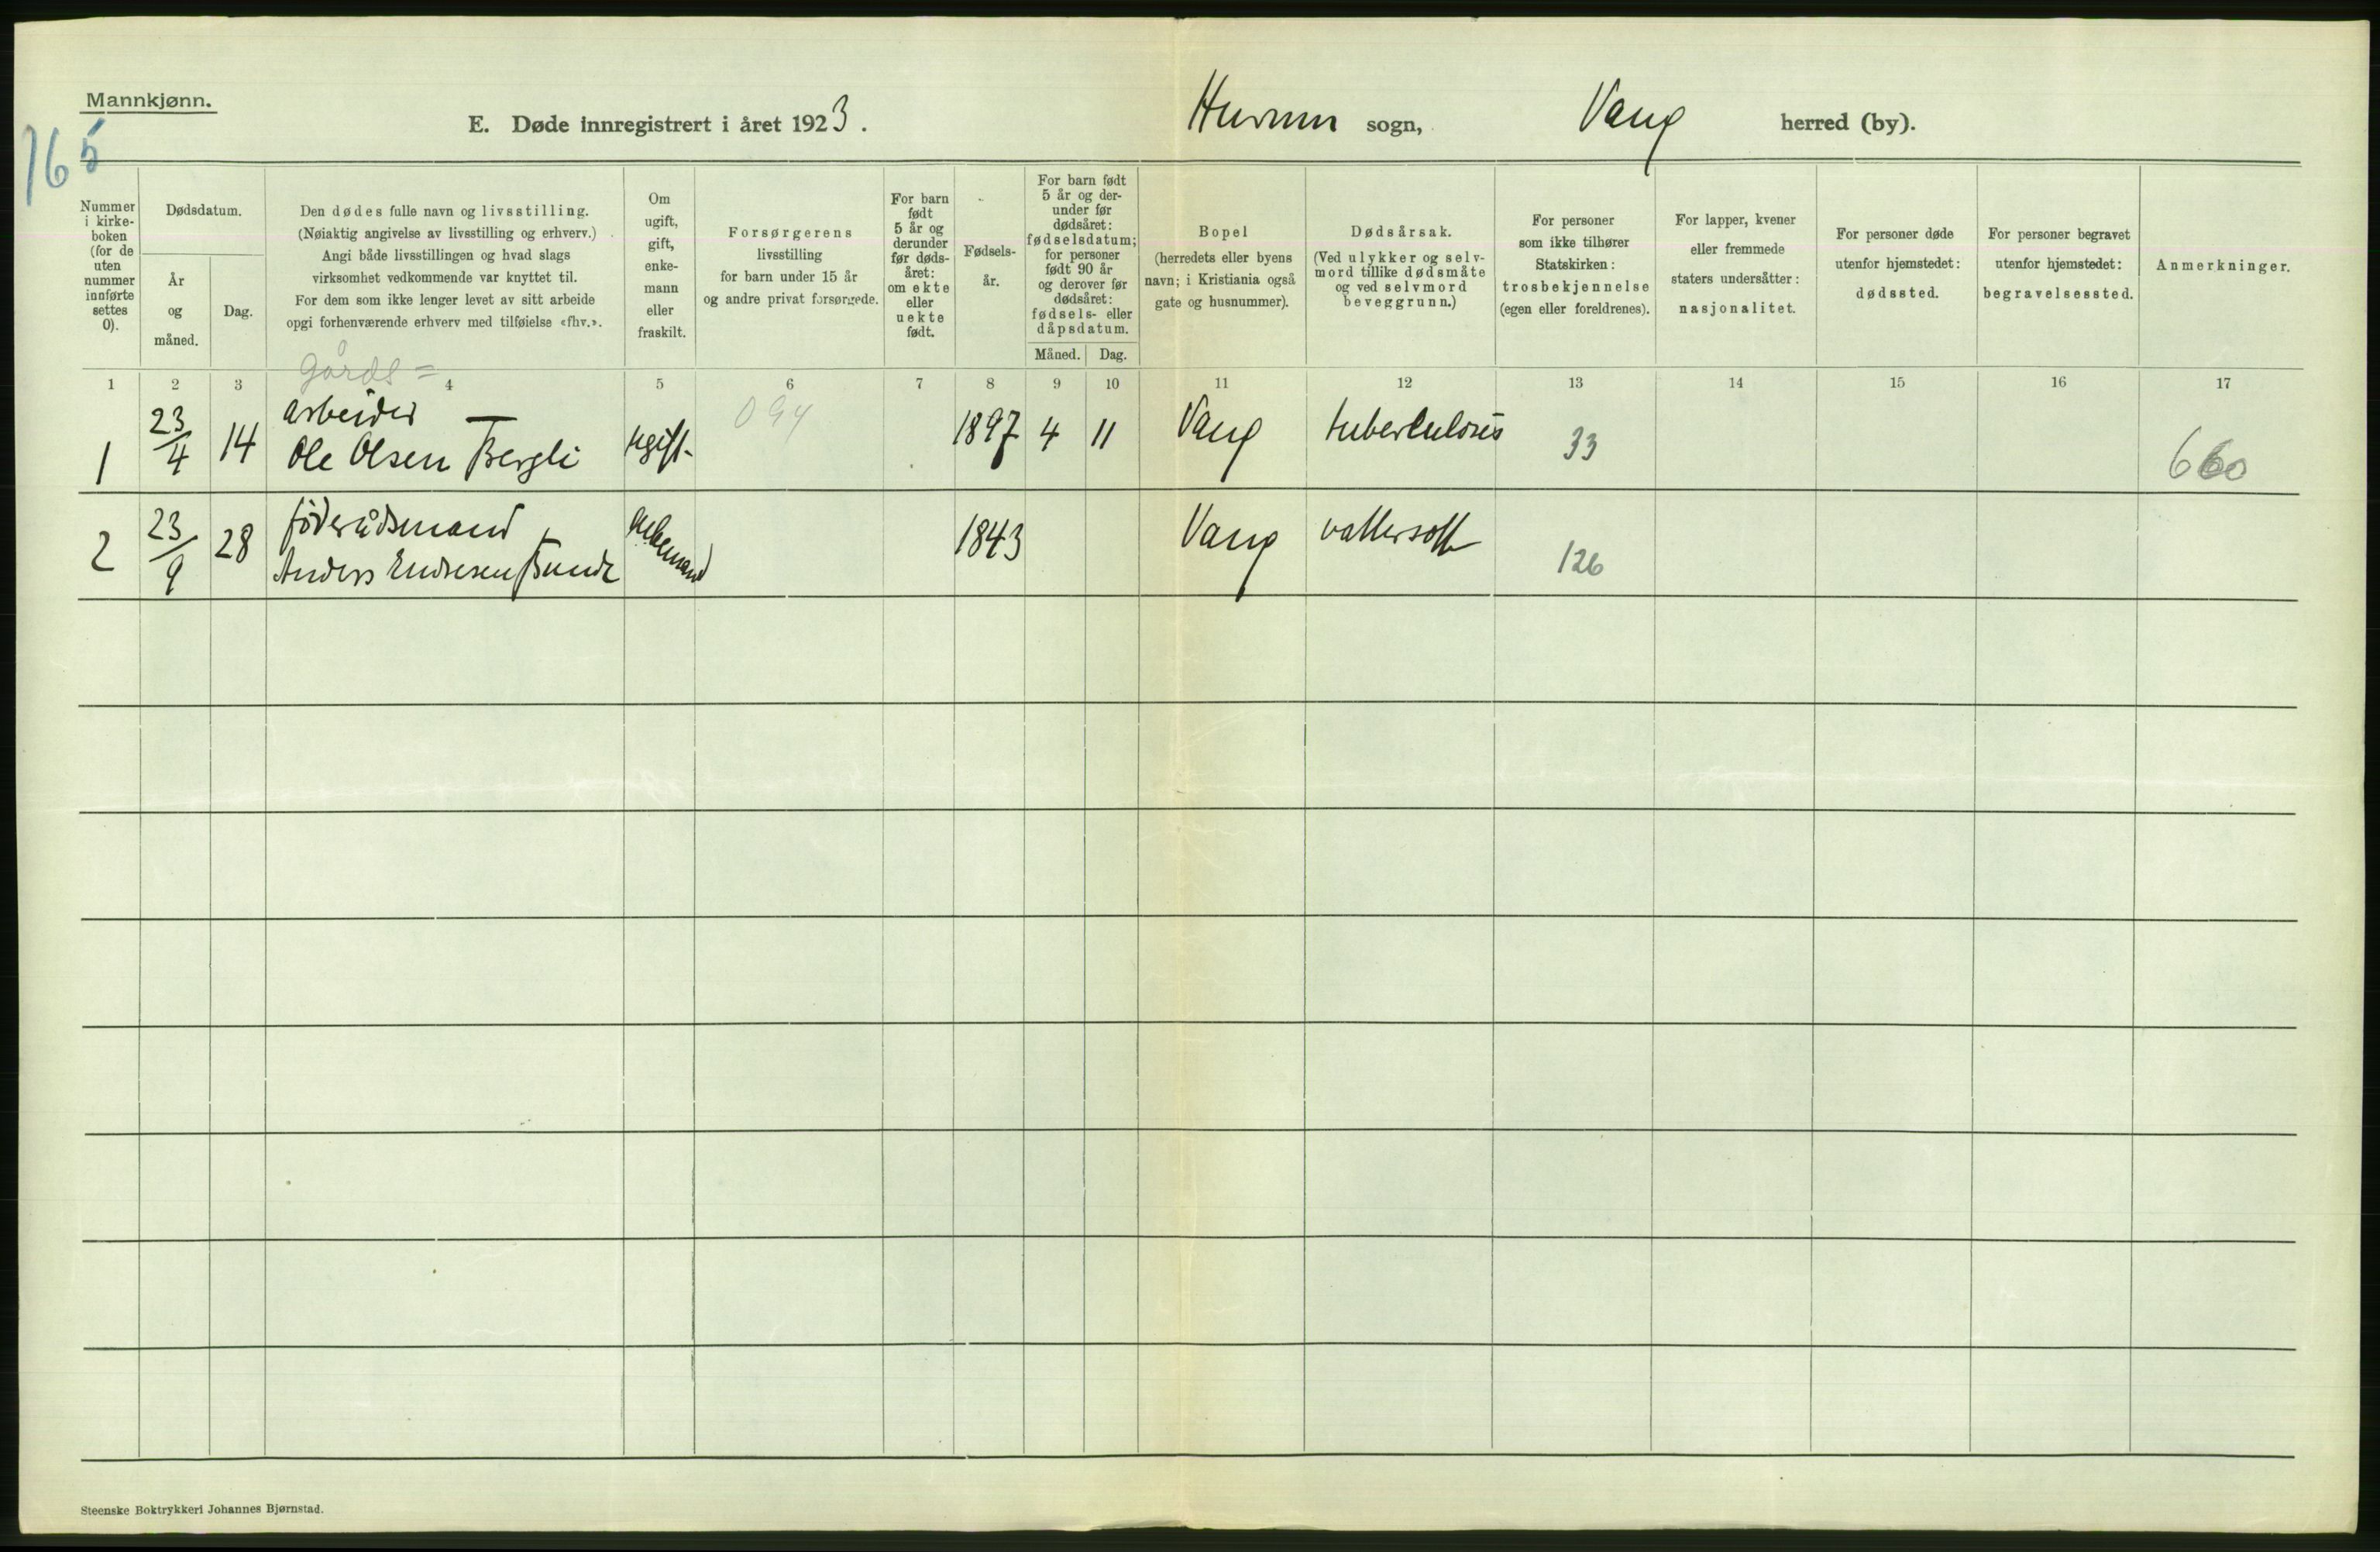 Mannkjønn.
165
E. Døde innregistrert i året 1923.
Hurum sogn, Vang herred (by).
Nummer i kirke-boken (for de uten nummer innførte settes 0).
Dødsdatum.
År og måned.
Dag.
Den dødes fulle navn og livsstilling.
(Nøiaktig angivelse av livsstilling og erhverv.)
Angi både livsstillingen og hvad slags
virksomhet vedkommende var knyttet til.
For dem som ikke lenger levet av sitt arbeide
opgi forhenværende erhverv med tilføielse «fhv.».
Om ugift, gift, enke-mann eller fraskilt.
Forsørgerens
livsstilling
for barn under 15 år
og andre privat forsørgede.
For barn født 5 år og derunder før døds-året: om ekte eller uekte født.
Fødsels-år.
For barn født 5 år og der-under før dødsåret: fødselsdatum; for personer født 90 år og derover før dødsåret: fødsels- eller dåpsdatum.
Måned. Dag.
Bopel
(herredets eller byens
navn; i Kristiania også
gate og husnummer).
Dødsårsak.
(Ved ulykker og selv-
mord tillike dødsmåte
og ved selvmord
beveggrunn.)
For personer
som ikke tilhører
Statskirken:
trosbekjennelse
(egen eller foreldrenes).
For lapper, kvener
eller fremmede
staters undersåtter:
nasjonalitet.
For personer døde
utenfor hjemstedet:
dødssted.
For personer begravet
utenfor hjemstedet:
begravelsessted.
Anmerkninger.
1 2 3 4 5 6 7 8 9 10 11 12 13 14 15 16 17
Gårds=
arbeider
1 23/4 14 Ole Olsen Bergli ugift 094 1897 4 11 Vang tuberkulose 33 660
føderådsmand
2 23/9 28 Anders Endresen Bunde enkemand 1843 Vang vattersott 126
Steenske Boktrykkeri Johannes Bjørnstad.